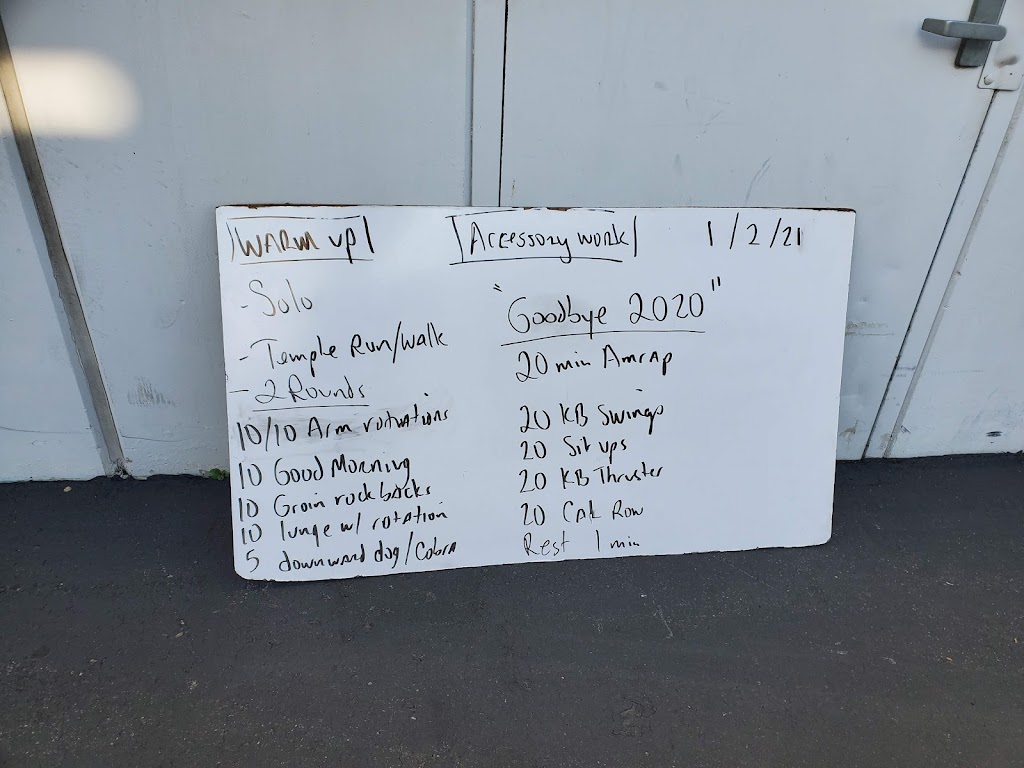 WARM up
- Solo
- Temple Run/walk
- 2 Rounds
10/10 Arm rotations
10 Good Morning
10 Groin rock backs
10 lunge w/ rotation
5 downward dog/Cobra
Accessory work
1/2/21
"Goodbye 2020"
20 min Amrap
20 KB Swings
20 Sit ups
20 KB Thruster
20 Cal Row
Rest 1 min